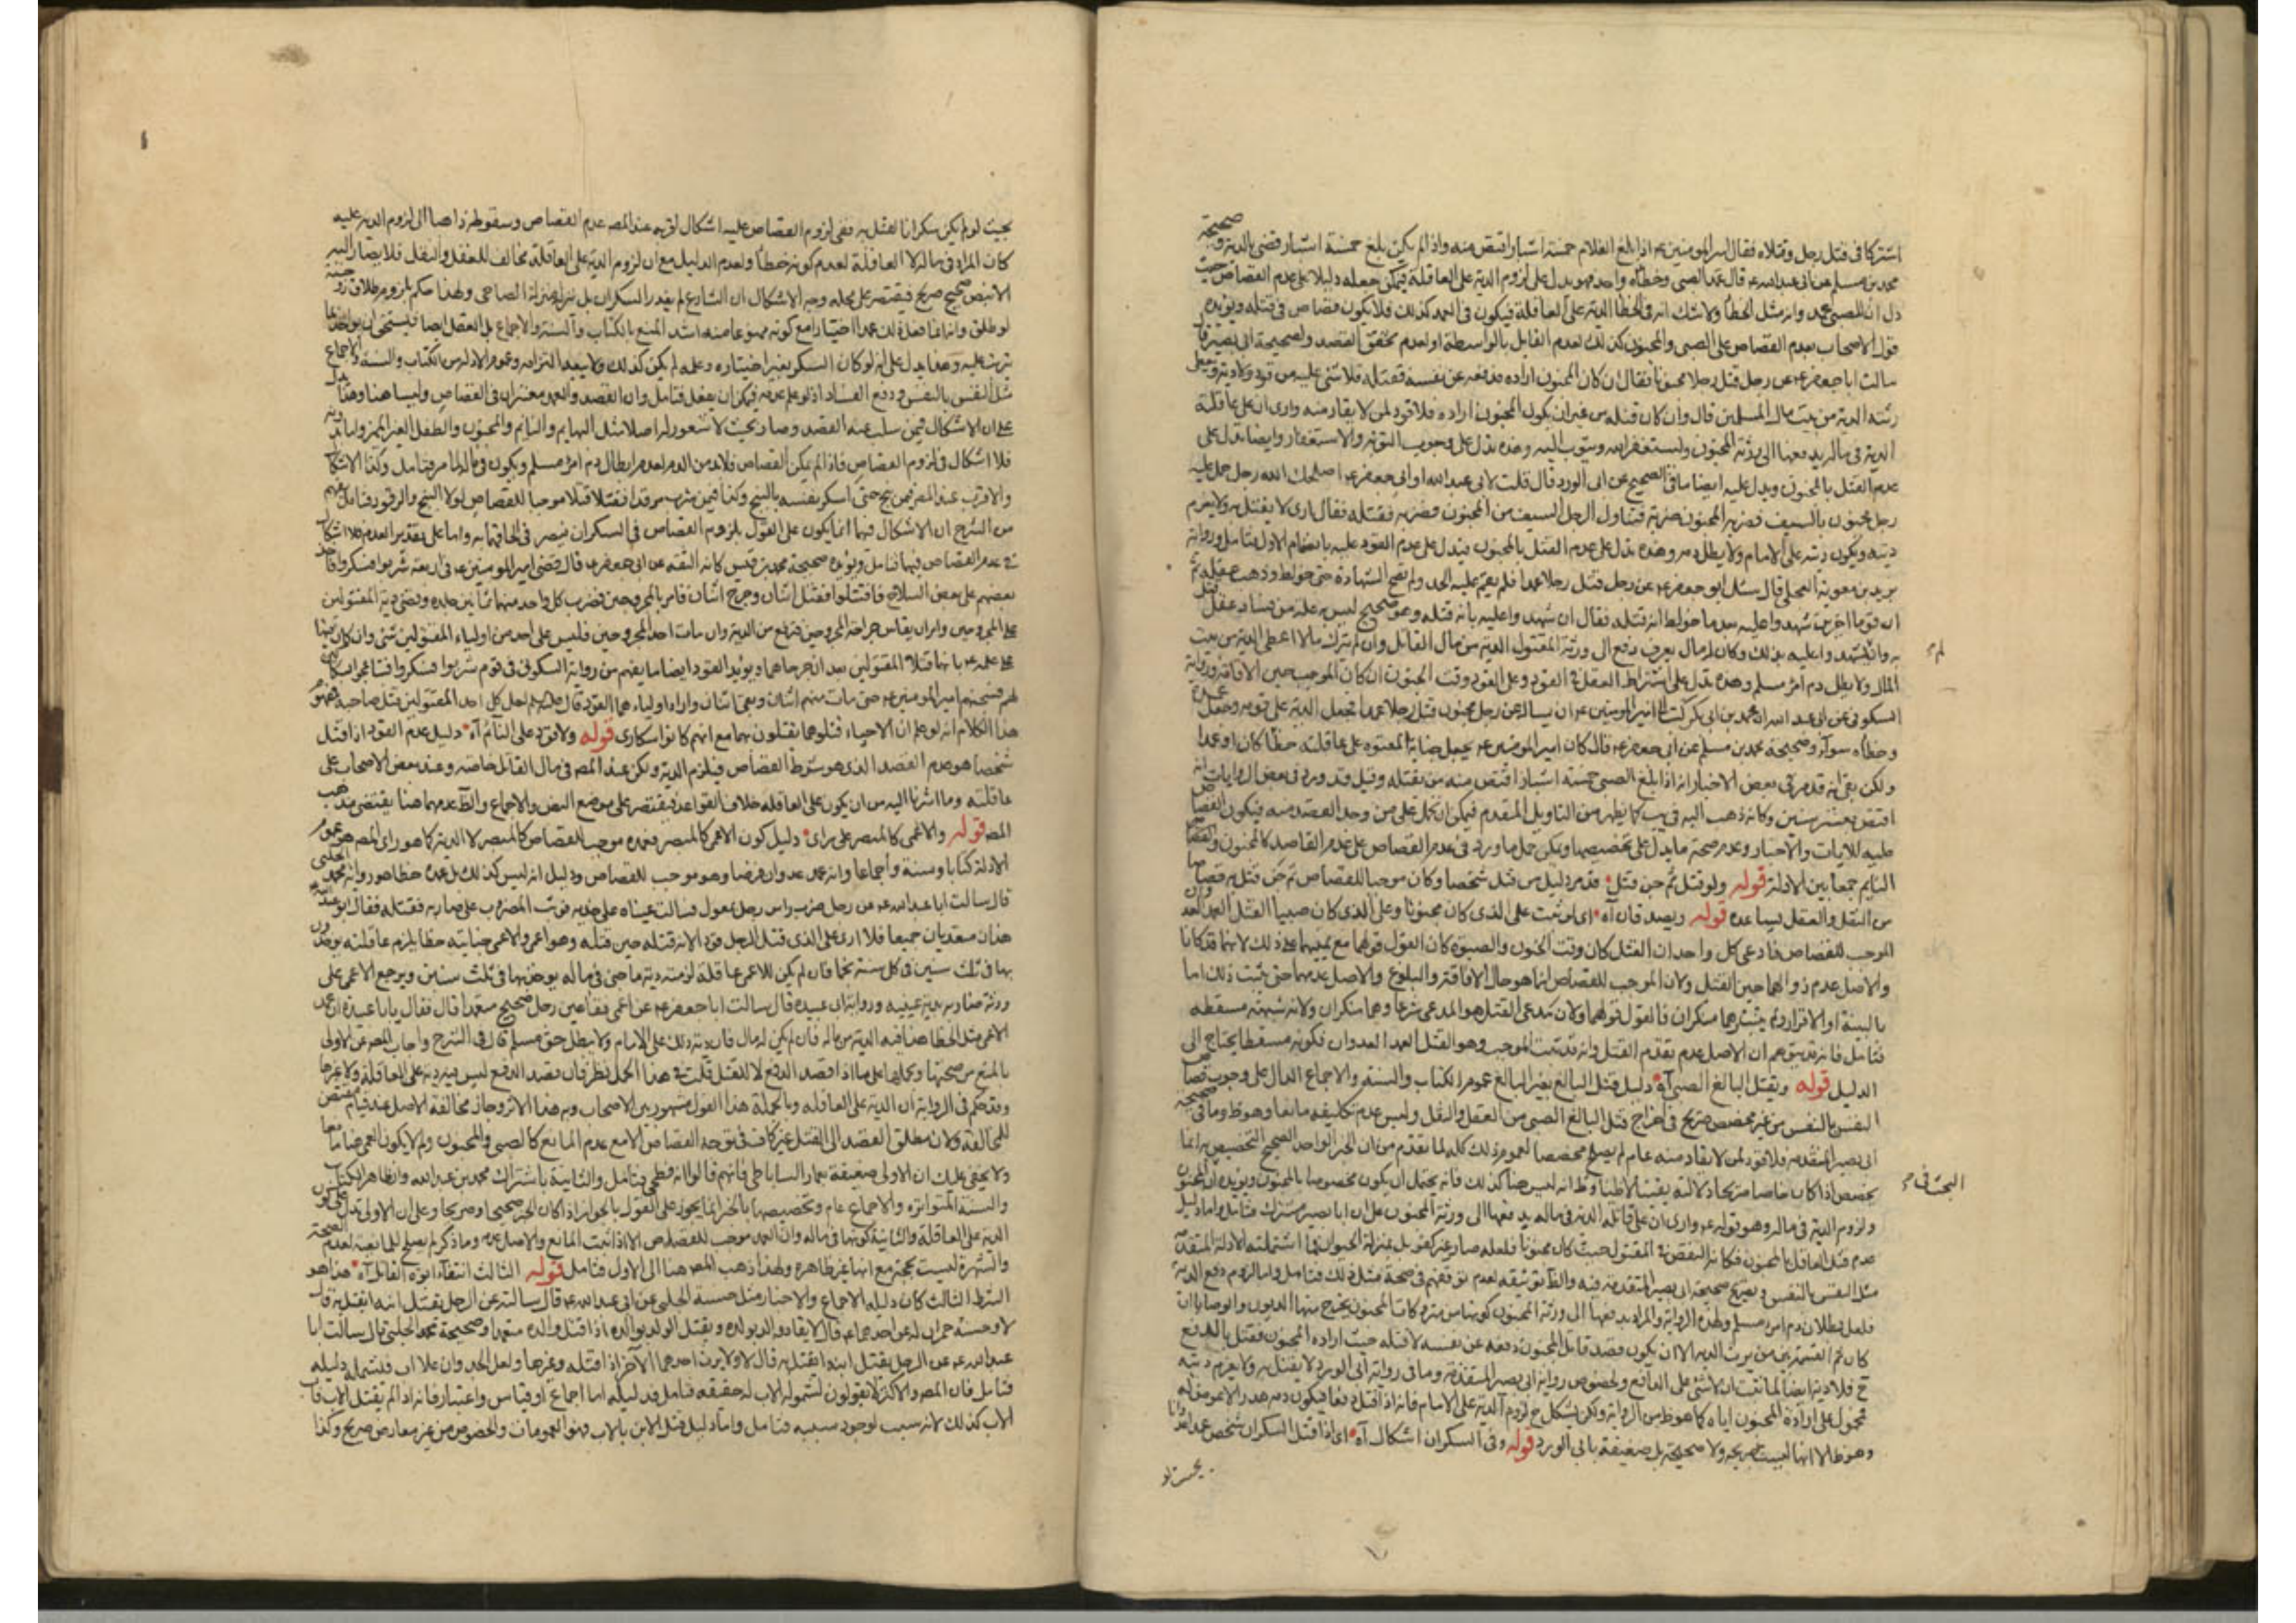 صحيحة
اشتركا في قتل رجل وقتلاه فقال امير المومنين ع اذا بلغ الغلام خمسة اشبار اقتص منه واذا لم يكن بلغ خمسة اشبار قضى بالدية و
محمد بن مسلم عن ابى عبد الله ع قال عمد الصبى وخطاه واحد فهو يدل على لزوم الدية على العاقلة فيمكن جعله دليلا على عدم القصاص حيث
دل ان للصبى عمد وانه مثل الخطأ ولا شك انه في الخطأ الدية على العاقلة فيكون في العمد كذلك فلا يكون قصاص في قتله ويؤيده
قول الاصحاب بعدم القصاص على الصبى والمجنون كذلك لعدم القابل بالواسطة او لعدم تحقق القصد ولصحيحة ابى بصير قال
سالت ابا جعفر ع عن رجل قتل رجلا مجنونا فقال ان كان المجنون اراده فدفعه عن نفسه فقتله فلا شئ عليه من قود ولا دية ويعطى
رثته الدية من بيت مال المسلمين قال وان كان قتله من غير ان يكون المجنون اراده فلا قود لمن لا يقاد منه وارى ان على عاقلته
الدية في ماله يدفعها الى ورثة المجنون وليستغفر الله ويتوب اليه وهذه تدل على وجوب التوبة والاستغفار وايضا تدل على
عدم القتل بالمجنون ويدل عليه ايضا ما في الصحيح عن ابى الورد قال قلت لابى عبد الله او ابى جعفر ع اصلحك الله رجل حمل عليه
رجل مجنون بالسيف فضربه المجنون ضربة فتناول الرجل السيف من المجنون فضربه فقتله فقال ارى لا يقتل به ولا يغرم
ديته ويكون ديته على الامام ولا يطل دمه وهذه تدل على عدم القتل بالمجنون فيدل على عدم القود عليه بانضمام الاول فتامل ورواية
بريد بن معوية العجلى قال سئل ابو جعفر ع عن رجل قتل رجلا عمدا فلم يقم عليه الحد ولم تصح الشهادة حتى خولط وذهب عقله ثم
ان قوما اخرين شهدوا عليه بعد ما خولط انه قتله فقال ان شهدوا عليه بانه قتله وهو صحيح ليس به علة من فساد عقل قتل
به وان لم يشهدوا عليه بذلك وكان له مال يعرف دفع الى ورثة المقتول الدية من مال القاتل وان لم يترك مالا اعطى الدية من بيت
المال ولا يطل دم امرء مسلم وهذه تدل على اشتراط العقل في القود وعلى القود وقت الجنون ان كان الموجب حين الافاقة ورواية
السكونى عن ابى عبد الله ان محمد بن ابى بكر كتب الى امير المومنين ع ان يساله عن رجل مجنون قتل رجلا عمدا فجعل الدية على قومه وجعل عمده
وخطأه سواء وصحيحة محمد بن مسلم عن ابى جعفر ع قال كان امير المومنين ع يجعل جناية المعتوه على عاقلته خطأ كان او عمدا
ولكن بقى انه قد مر في بعض الاخبار انه اذا بلغ الصبى خمسة اشبار اقتص منه من يقتله وقيل قد ورد في بعض الروايات انه
اقتص بعشر سنين وكانه ذهب اليه في يب كما يظهر من التاويل المقدم فيمكن ان تحمل على من وجد القصد منه فيكون القصاص
عليه للايات والاخبار وعدم صحة ما يدل على تخصيصها ويمكن حمل ما ورد في عدم القصاص على عدم القاصد كالمجنون
النايم جمعا بين الادلة قوله ولو قتل ثم جن قتل قد مر دليل من قتل شخصا وكان موجبا للقصاص ثم جن قتل به قصاصا
من النقل والعقل يساعده قوله ويصدقان آه اى لو ثبت على الذى كان مجنونا وعلى الذى كان صبيا القتل العمد العدوان
الموجب للقصاص فادعى كل واحد ان القتل كان وقت الجنون والصبوة كان القول قولهما مع يمينهما على ذلك لانهما قد كانا
والاصل عدم زوالهما حين القتل ولان الموجب للقصاص انما هو حال الافاقة والبلوغ والاصل عدمهما حتى يثبت ذلك اما
بالبينة او الاقرار ولم يثبت وهما منكران فالقول قولهما ولان مدعى القتل هو المدعى شرعا وهما منكران ولانه شبهة مسقطة
فتامل فانه قد يتوهم ان الاصل عدم تقدم القتل وانه قد ثبت الموجب وهو القتل العمد العدوان فكونه مسقطا يحتاج الى
الدليل قوله ويقتل البالغ الصبى آه دليل قتل البالغ بغير البالغ عموم الكتاب والسنة والاجماع الدال على وجوب قصاص
النفس بالنفس من غير مخصص صريح في اخراج قتل البالغ الصبى من العقل والنقل وليس عدم تكليفه مانعا وهو ظ وما في صحيحة
ابى بصير المتقدمة فلا قود لمن لا يقاد منه عام لم يصلح مخصصا لعموم ذلك كله لما تقدم من ان الخبر الواحد الصحيح التخصيص به انما
يخصص اذا كان خاصا صريحا دلالته يقينا لا ظنا وظ انه ليس هنا كذلك فانه يحتمل ان يكون مخصوصا بالمجنون ويؤيده ان المجنون
البحث في م
ولزوم الدية في ماله وهو قوله ع وارى ان على قاتله الدية في ماله يدفعها الى ورثة المجنون على ان ابا بصير مشترك فتامل واما دليل
عدم قتل العاقل بالمجنون فكانه النقص في المقتول حيث كان مجنونا فلعله صار غير كفو بل بمنزلة الحيوان فما اشتملته الادلة المتقدمة
مثل النفس بالنفس وتصريح صحيحة ابى بصير المتقدمة فيه والظ توثيقه لعدم توقفهم في صحة مثل ذلك فتامل واما لزوم دفع الدية
فلعل بطلان دم امرء مسلم ولهذه الرواية والمراد بدفعها الى ورثة المجنون كونها من متروكات المجنون يخرج منها الديون والوصايا ان
كان ثم القسمة بين من يرث الدية الا ان يكون قصد قاتل المجنون دفعه عن نفسه لا قتله حيث اراده المجنون فقتل بالدفع
ح فلا دية ايضا لما ثبت ان لا شئ على الدافع ولخصوص رواية ابى بصير المتقدمة وما في رواية ابى الورد لا يقتل به ولا يغرم ديته
محمول على ارادة المجنون اياه كما هو ظ من الرواية ولكن يشكل ح لزوم الدية على الامام فانه اذا قتل دفعا فيكون دمه هدرا
وهو ظ الا انها ليست صريحة ولا صحيحة بل ضعيفة بابى الورد قوله وفي السكران اشكال آه اى اذا قتل السكران شخص عمدا
بحيث لو
بحيث لو لم يكن سكرانا لقتل به ففى لزوم القصاص عليه اشكال اقربه عند المصه عدم القصاص وسقوطه ذاهبا الى لزوم الدية عليه
كان المراد في ماله لا العاقلة لعدم كونه خطأ ولعدم الدليل مع ان لزوم الدية على العاقلة مخالف للعقل والنقل فلا يصار اليه
الا بنص صحيح صريح فيقتصر على محله وجه الاشكال ان الشارع لم يعذر السكران بل نزله منزلة الصاحى ولهذا حكم بلزوم طلاق زوجته
لو طلق وانه انما فعل ذلك عمدا اختيارا مع كونه ممنوعا منه اشد المنع بالكتاب والسنة والاجماع بل العقل ايضا فيستحق ان يؤاخذ بما
ترتب عليه وهذا يدل على انه لو كان السكر بغير اختياره وعلمه لم يكن كذلك ولا يبعد التزامه وعموم الادلة من الكتاب والسنة والاجماع
مثل النفس بالنفس ودفع الفساد اذ لو علم عدمه فيمكن ان يفعل فتامل وان القصد والعمد معتبران في القصاص وليسا هنا وهذا يدل
على ان الاشكال فيمن سلب عنه القصد وصار بحيث لا شعور له اصلا مثل البهايم والنايم والمجنون والطفل الغير المميز واما بدونه
فلا اشكال في لزوم القصاص فاذا لم يكن القصاص فلا بد من الدم لعدم ابطال دم امرء مسلم ويكون في ماله لما مر فتامل وكذا الاشكال
والاقرب عند المصه فيمن بنج حتى اسكر نفسه بالبنج وكذا فيمن شرب مرقدا فقتلا قتلا موجبا للقصاص لولا البنج والرقود فتامل يفهم
من الشرح ان الاشكال فيهما انما يكون على القول بلزوم القصاص في السكران فيصر في الحاقهما به واما على تقدير العدم فلا اشكال
في عدم القصاص فيهما فتامل ويؤيده صحيحة محمد بن قيس كانه الثقة عن ابى جعفر ع قال قضى امير المومنين ع في اربعة شربوا فسكروا فاخذ
بعضهم على بعض السلاح فاقتتلوا فقتل اثنان وجرح اثنان فامر بالمجروحين فضرب كل واحد منهما ثمانين جلده وقضى دية المقتولين
على المجروحين وامر ان يقاس جراحة المجروحين فترفع من الدية وان مات احد المجروحين فليس على احد من اولياء المقتولين شئ وان كان
على علمه ع بانهما قتلا المقتولين بعد ان جرحاهما ويؤيد القود ايضا ما يفهم من رواية السكونى في قوم شربوا فسكروا فتباعجوا بسكاكين
لهم فسجنهم امير المومنين ع حتى مات منهم اثنان وبقى اثنان واراد اولياءهما القود قال لعل كل احد المقتولين قتل صاحبه فمفهوم
هذا الكلام انه لو علم ان الاحياء قتلوهما يقتلون بهما مع انهم كانوا سكارى قوله ولا قود على النائم آه دليل عدم القود اذا قتل
شخصا هو عدم القصد الذى هو شرط القصاص فيلزم الدية ولكن عند المصه في مال القاتل خاصة وعند بعض الاصحاب على
عاقلته وما اشرنا اليه من ان يكون على العاقلة خلاف القواعد فيقتصر على موضع النص والاجماع والظ عدمهما هنا يقتضى مذهب
المصه قوله والاعمى كالمبصر على راى دليل كون الاعمى كالمبصر فعمده موجب للقصاص كالمبصر لا الدية كما هو راى المصه هو عموم
الادلة كتابا وسنة واجماعا وانه عمد عدوان فرضا وهو موجب للقصاص ودليل انه ليس كذلك بل عمده خطا هو رواية محمد الحلبى
قال سالت ابا عبد الله ع عن رجل ضرب راس رجل بمعول فسالت عيناه على خديه فوثب المضروب على ضاربه فقتله فقال ابو عبد الله ع
هذان متعديان جميعا فلا ارى على الذى قتل الرجل قودا لانه قتله حين قتله وهو اعمى والاعمى جنايته خطا يلزم عاقلته يؤخذون
بها في ثلث سنين في كل سنة نجما فان لم يكن للاعمى عاقلة لزمته دية ما جنى في ماله يؤخذ بها في ثلث سنين ويرجع الاعمى على
ورثة ضاربه بدية عينيه ورواية ابى عبيدة قال سالت ابا جعفر ع عن اعمى فقأ عين رجل صحيح متعمدا قال فقال يا ابا عبيدة ان عمد
الاعمى مثل الخطا هذا فيه الدية من ماله فان لم يكن له مال فان دية ذلك على الامام ولا يبطل حق مسلم قال في الشرح واجاب المصه عن الاولى
بالمنع من صحتها وبحملها على ما اذا قصد الدفع لا للقتل قلت في هذا الحمل نظر فان قصد الدفع ليس فيه دية على العاقلة ولا غيرها
وقد حكم في الرواية ان الدية على العاقلة وبالجملة هذا القول مشهور بين الاصحاب وبه هذا الاثر وجاز مخالفة الاصل عند قيام مقتض
للمخالفة ولان مطلق القصد الى القتل غير كاف في توجه القصاص الا مع عدم المانع كالصبى والمجنون ولم لا يكون العمى هنا مانعا
ولا يخفى عليك ان الاولى ضعيفة بعمار الساباطى فانهم قالوا انه فطحى فتامل والثانية باشتراك محمد بن عبد الله وان ظاهر الكتاب
والسنة المتواترة والاجماع عام وتخصيصها بالخبر انما يجوز على القول بالجواز اذا كان الخبر صحيحا وصريحا وعلى ان الاولى تدل على كون
الدية على العاقلة والثانية كونها في ماله وان العمد موجب للقصاص الا اذا ثبت المانع والاصل عدمه وما ذكر لم يصلح للمانعية لعدم الصحة
والشهرة ليست بحجة مع انها غير ظاهرة ولهذا ذهب المصه هنا الى الاول فتامل قوله الثالث انتفاء ابوة القاتل آه هذا هو
الشرط الثالث كان دليله الاجماع والاخبار مثل حسنة الحلبى عن ابى عبد الله ع قال سالته عن الرجل يقتل ابنه ايقتل به قال
لا وحسنة حمران له عن احدهما ع قال لا يقاد والد بولده ويقتل الولد بوالده اذا قتل والده متعمدا وصحيحة محمد الحلبى قال سالت ابا
عبد الله ع عن الرجل يقتل ابنه ايقتل به قال لا ولا يرث احدهما الآخر اذا قتله وغيرها ولعل الجد وان علا اب فتشمله دليله
فتامل فان المصه والاكثر لا يقولون لشموله الاب له حقيقة فتامل فدليله اما اجماع او قياس واعتبار فانه اذا لم يقتل الاب فاب
الاب كذلك لانه سبب لوجود سببه فتامل واما دليل قتل الابن بالاب فهو العمومات والخصوص من غير معارض صريح وكذا